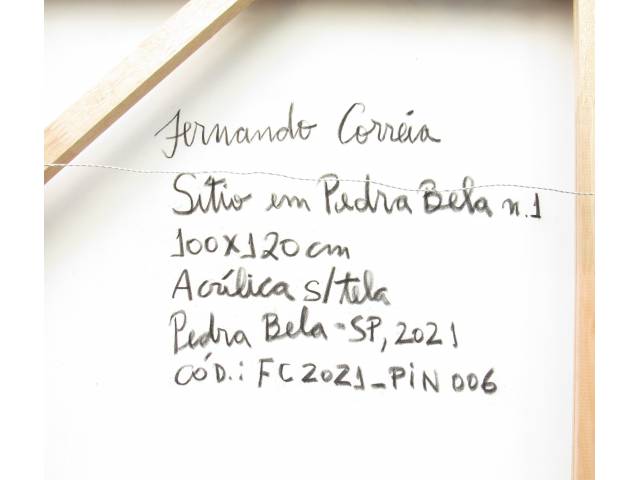 Fernando Corréia
Sítio em Pedra Bela n.1
100x120cm
Acrílica s/tela
Pedra Bela-SP, 2021
CÓD.: FC2021_PIN006